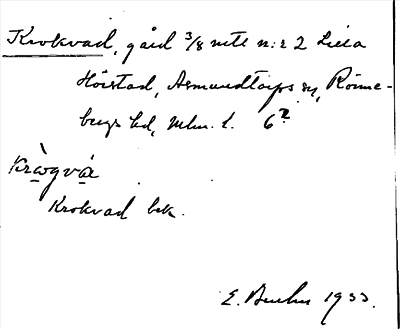 Krokvad, gård 3/8 mtl n:r 2 Lilla
Hårstad, Asmundtorps sn, Rönne-
bergs hd, Mlm. l. 6 2
Kràgvà
Krokvad bek.
E. 1933.